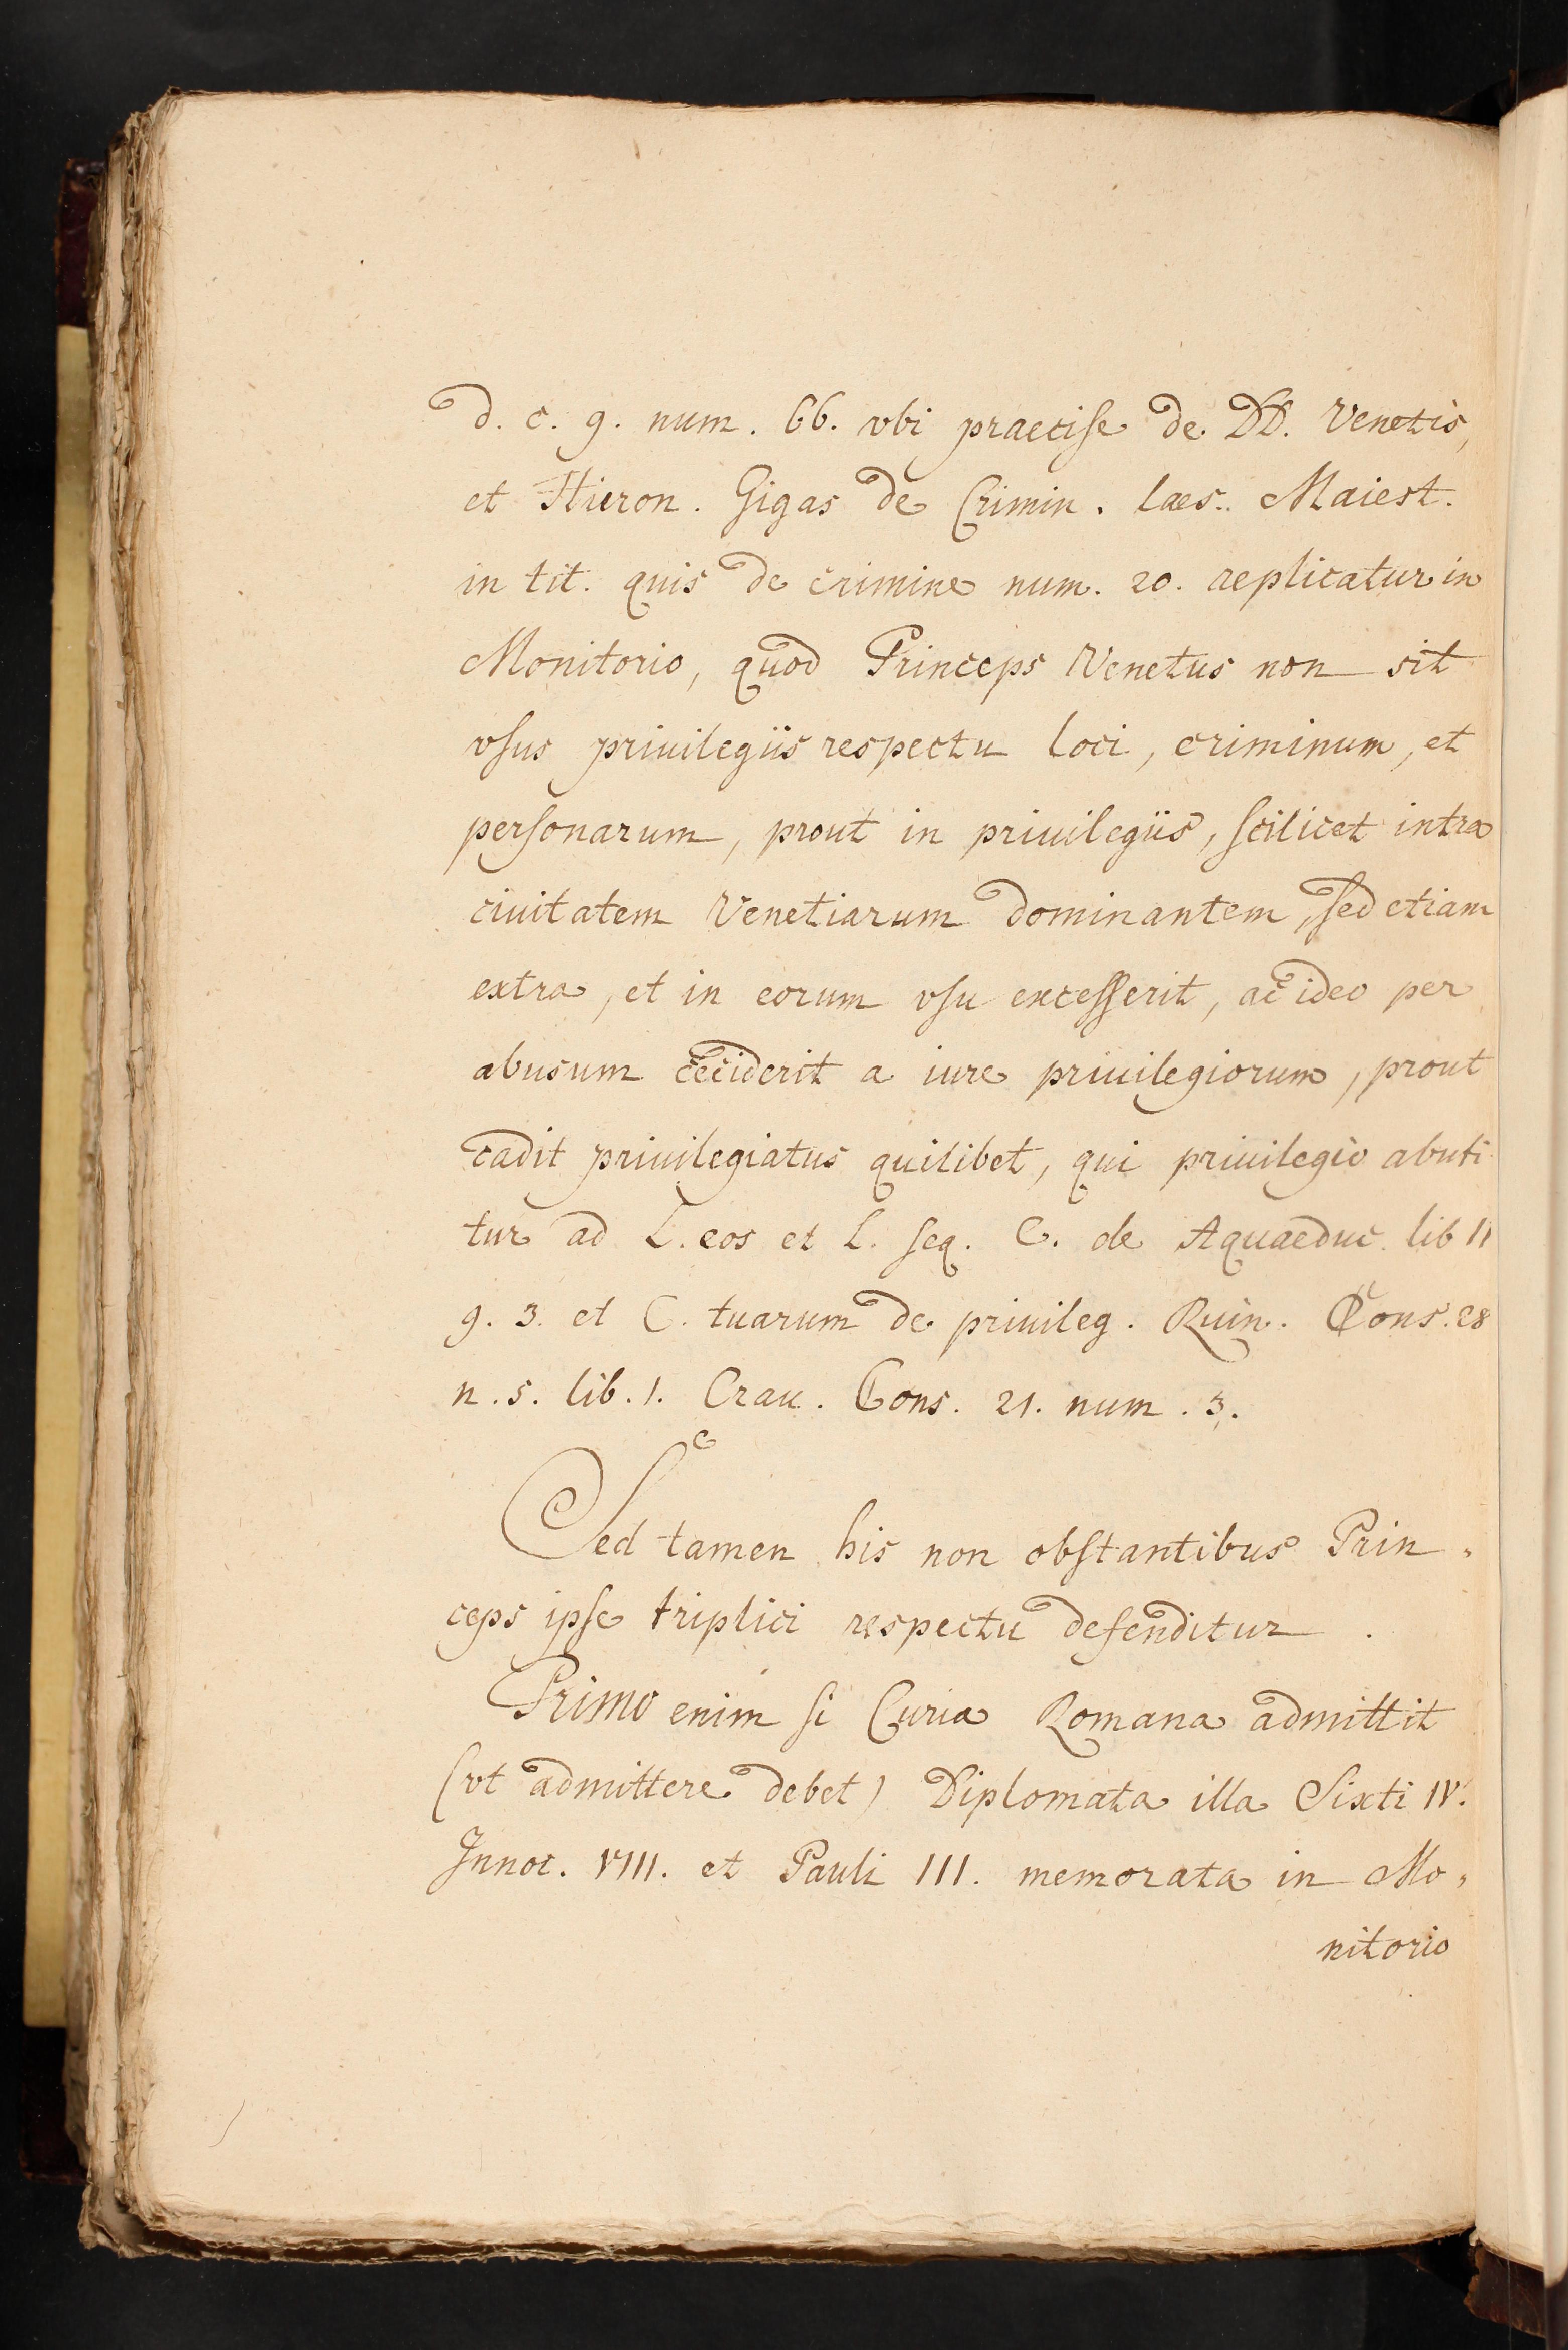 d. c. 9. num. 66. vbi praecise de DD. Venetis,
et Hieron. Gigas de Crimin. laes. Maiest.
in tit. quis de crimine num. 20. replicatur in
Monitorio, quod Princeps Venetus non sit
vsus priuilegiis respectu loci, criminum, et
personarum, prout in priuilegiis, scilicet intra
ciuitatem Venetiarum dominantem, sed etiam
extra, et in eorum vsu excesserit, ac ideo per
abusum ceciderit a iure priuilegiorum, prout
cadit priuilegiatus quilibet, qui priuilegio abuti
tur ad L. eos et L. seq. C. de Aquaeduc. lib 11
9. 3. et C. tuarum de priuileg. Ruin. Cons. 28
n. 5. lib. 1. Crau. Cons. 21. num. 3.
Sed tamen his non obstantibus Prin,
ceps ipse triplici respectu defenditur.
Primo enim si Curia Romana admittit
(vt admittere debet) Diplomata illa Sixti IV.
Innoc. VIII. et Pauli III. memorata in Mo,
nitorio